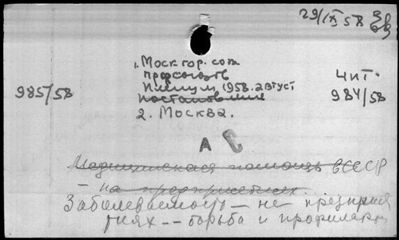 29/IX 58
1. Моск гор. сов
профсоюзов
Пленум, 1958. август
постановления
985/58
Чит.
984/58
2. Москва.
А
Медицинская помощь в СССР
– на предприятиях.
Заболеваемость – не предприя
тиях – борьба и профилакт